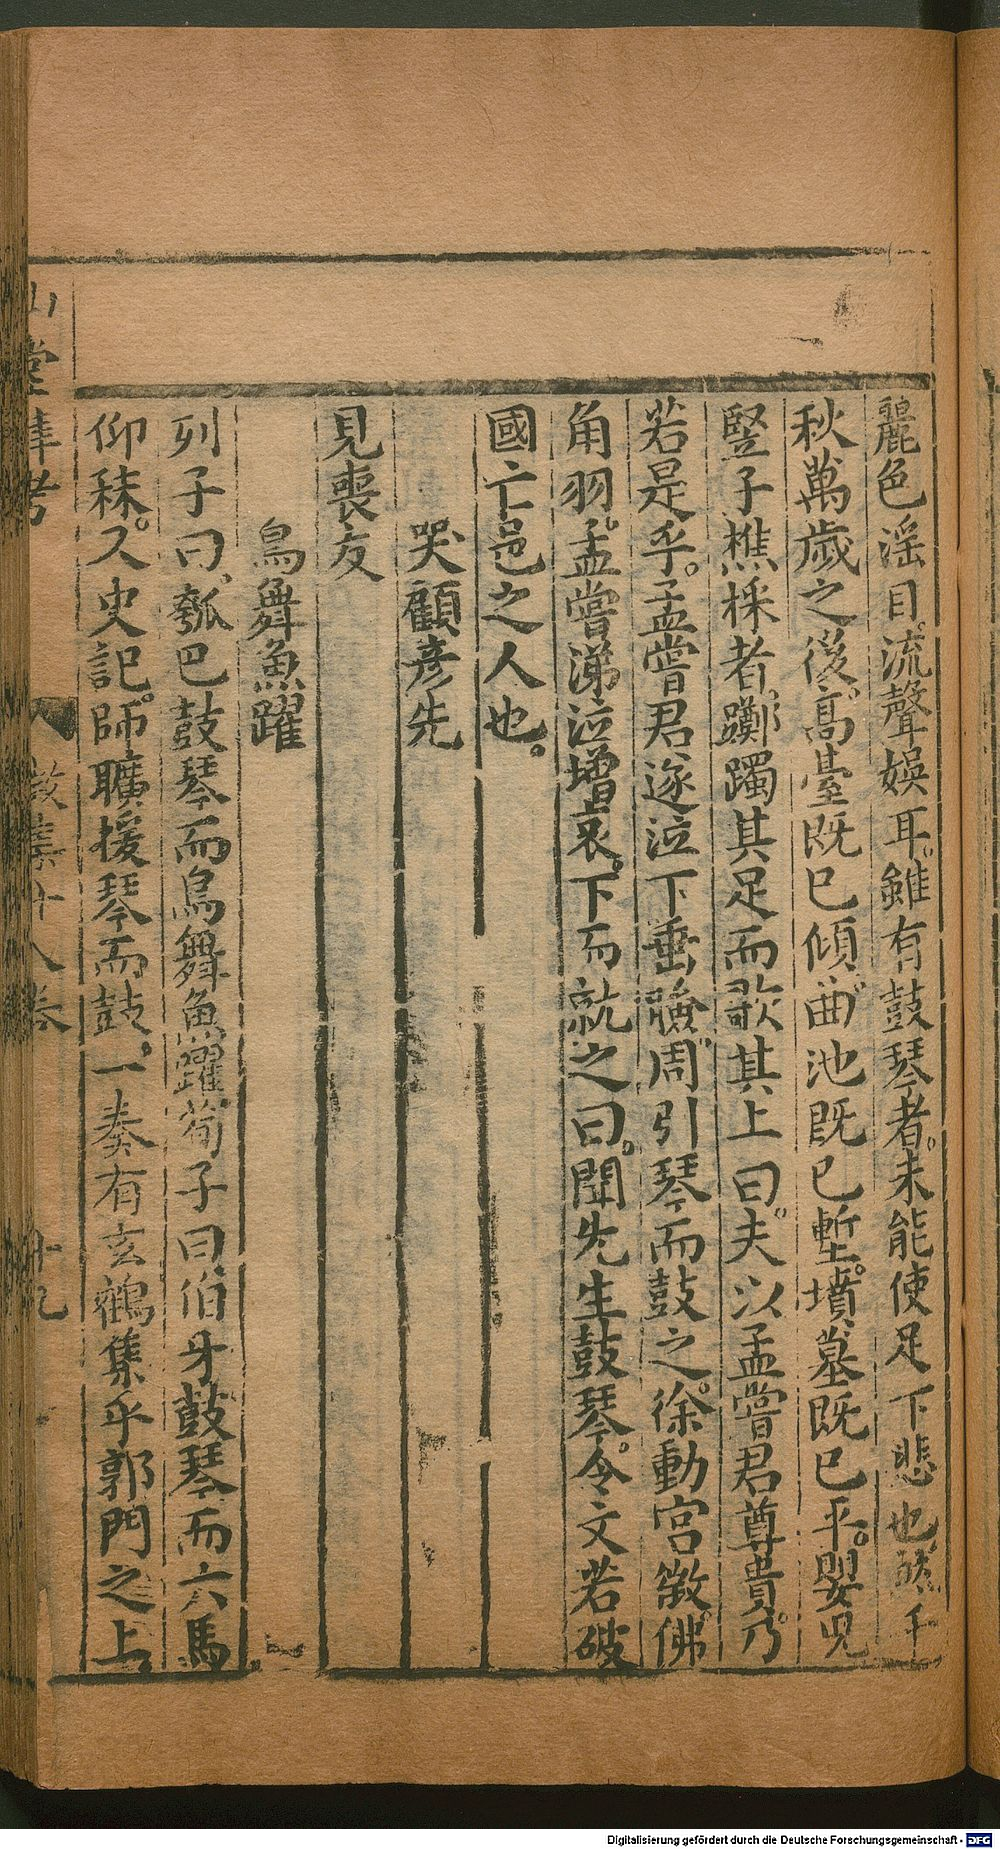 麗色滛目。流聲娛耳。雖有鼓琴者。未能使足下悲也。然千
秋萬歲之後。髙臺既已傾。曲池既已塹。墳墓既已平。嬰児
竪子樵採者。躑躅其足而歌其上曰。夫以孟嘗君尊貴。乃
若是乎。孟嘗君遂泣下垂臉。周引琴而鼓之。徐動宮徵。佛
角羽。孟嘗涕泣增哀。下而就之曰。聞先生鼓琴。令文若破
國亡邑之人也。
哭顧彥先
見喪友
鳥舞魚躍
列子曰。瓠巴鼓琴而鳥舞魚躍。荀子曰。伯牙鼓琴而六馬
仰秣。又史記。師曠援琴而鼓。一奏有玄鶴集乎郭門之上。
山堂肆考
徵集十八卷
十九
Digitalisierung gefördert durch die Deutsche Forschungsgemeinschaft - DFG